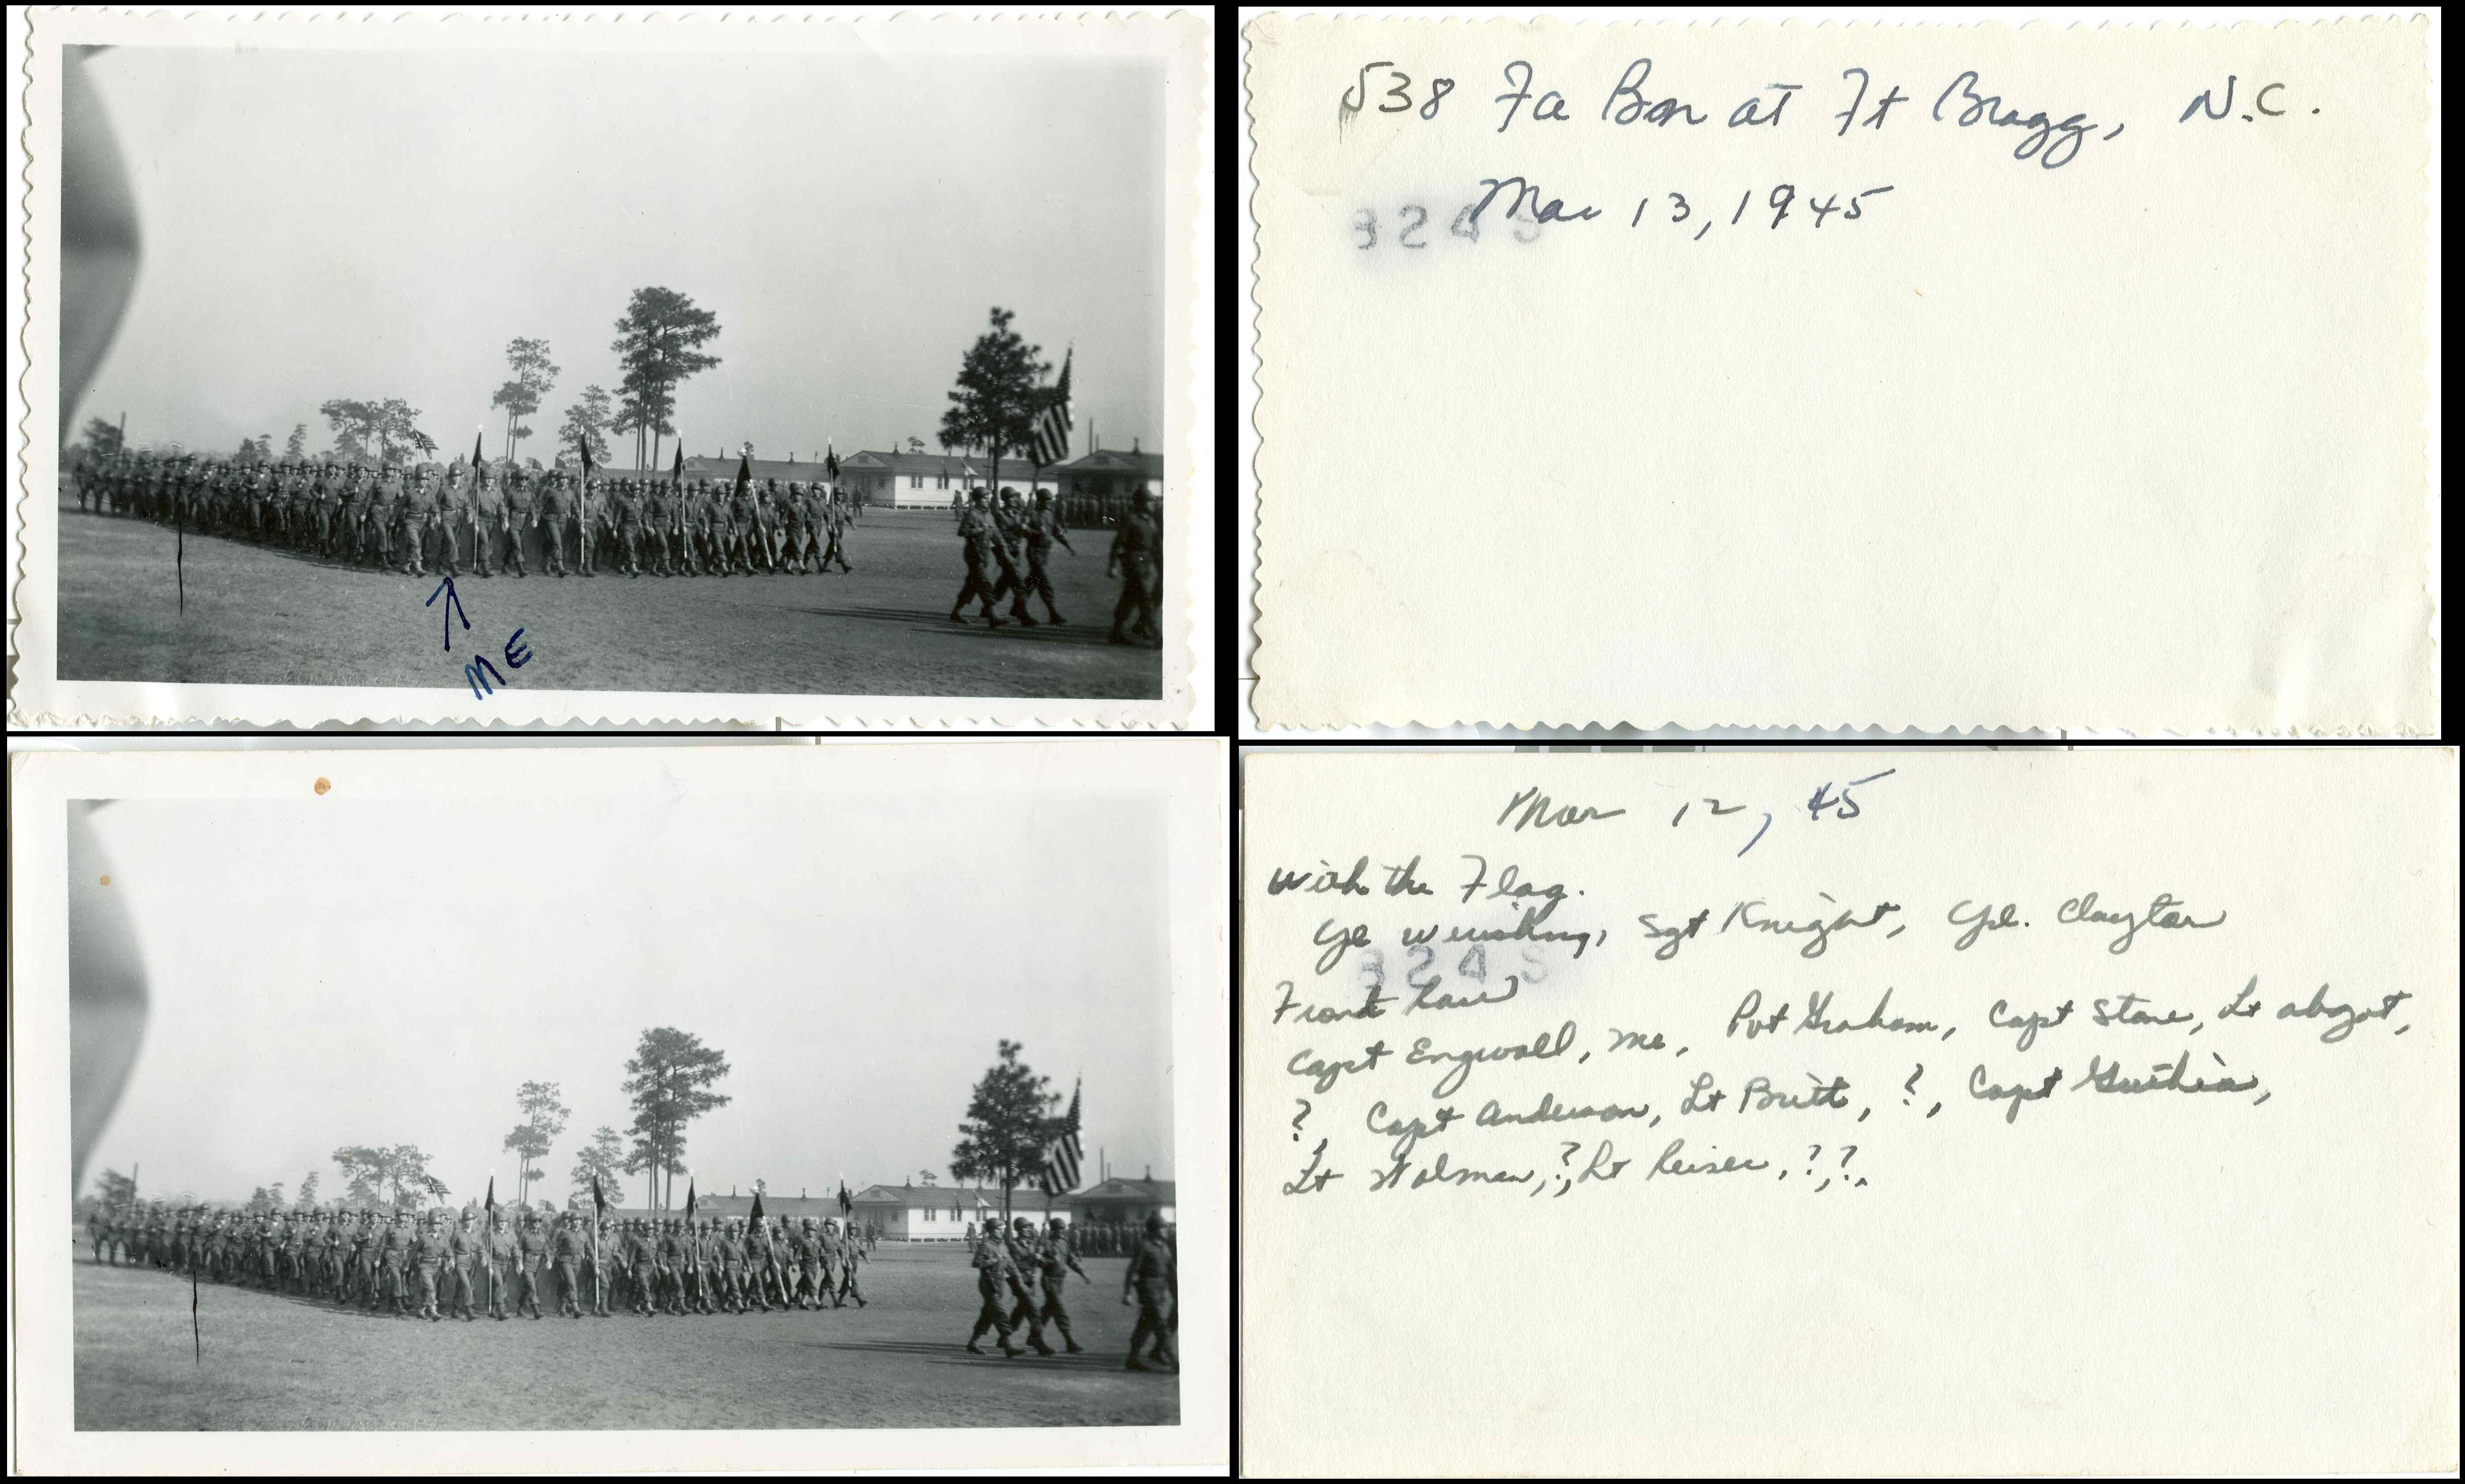 ME
538 Fa Bon at Ft Bragg, N.C.
Mar 13, 1945
3245
Mar 12, 45
With the Flag.
Sgt Knight, Cpl. Clayton
3245
Front Row
Capt Engwall, Me, Pvt Graham, Capt Stone, Lt
?, Capt Anderson, Lt Britt, ?, Capt Guthrie,
Lt Holman, ?, Lt Reiser, ?, ?,